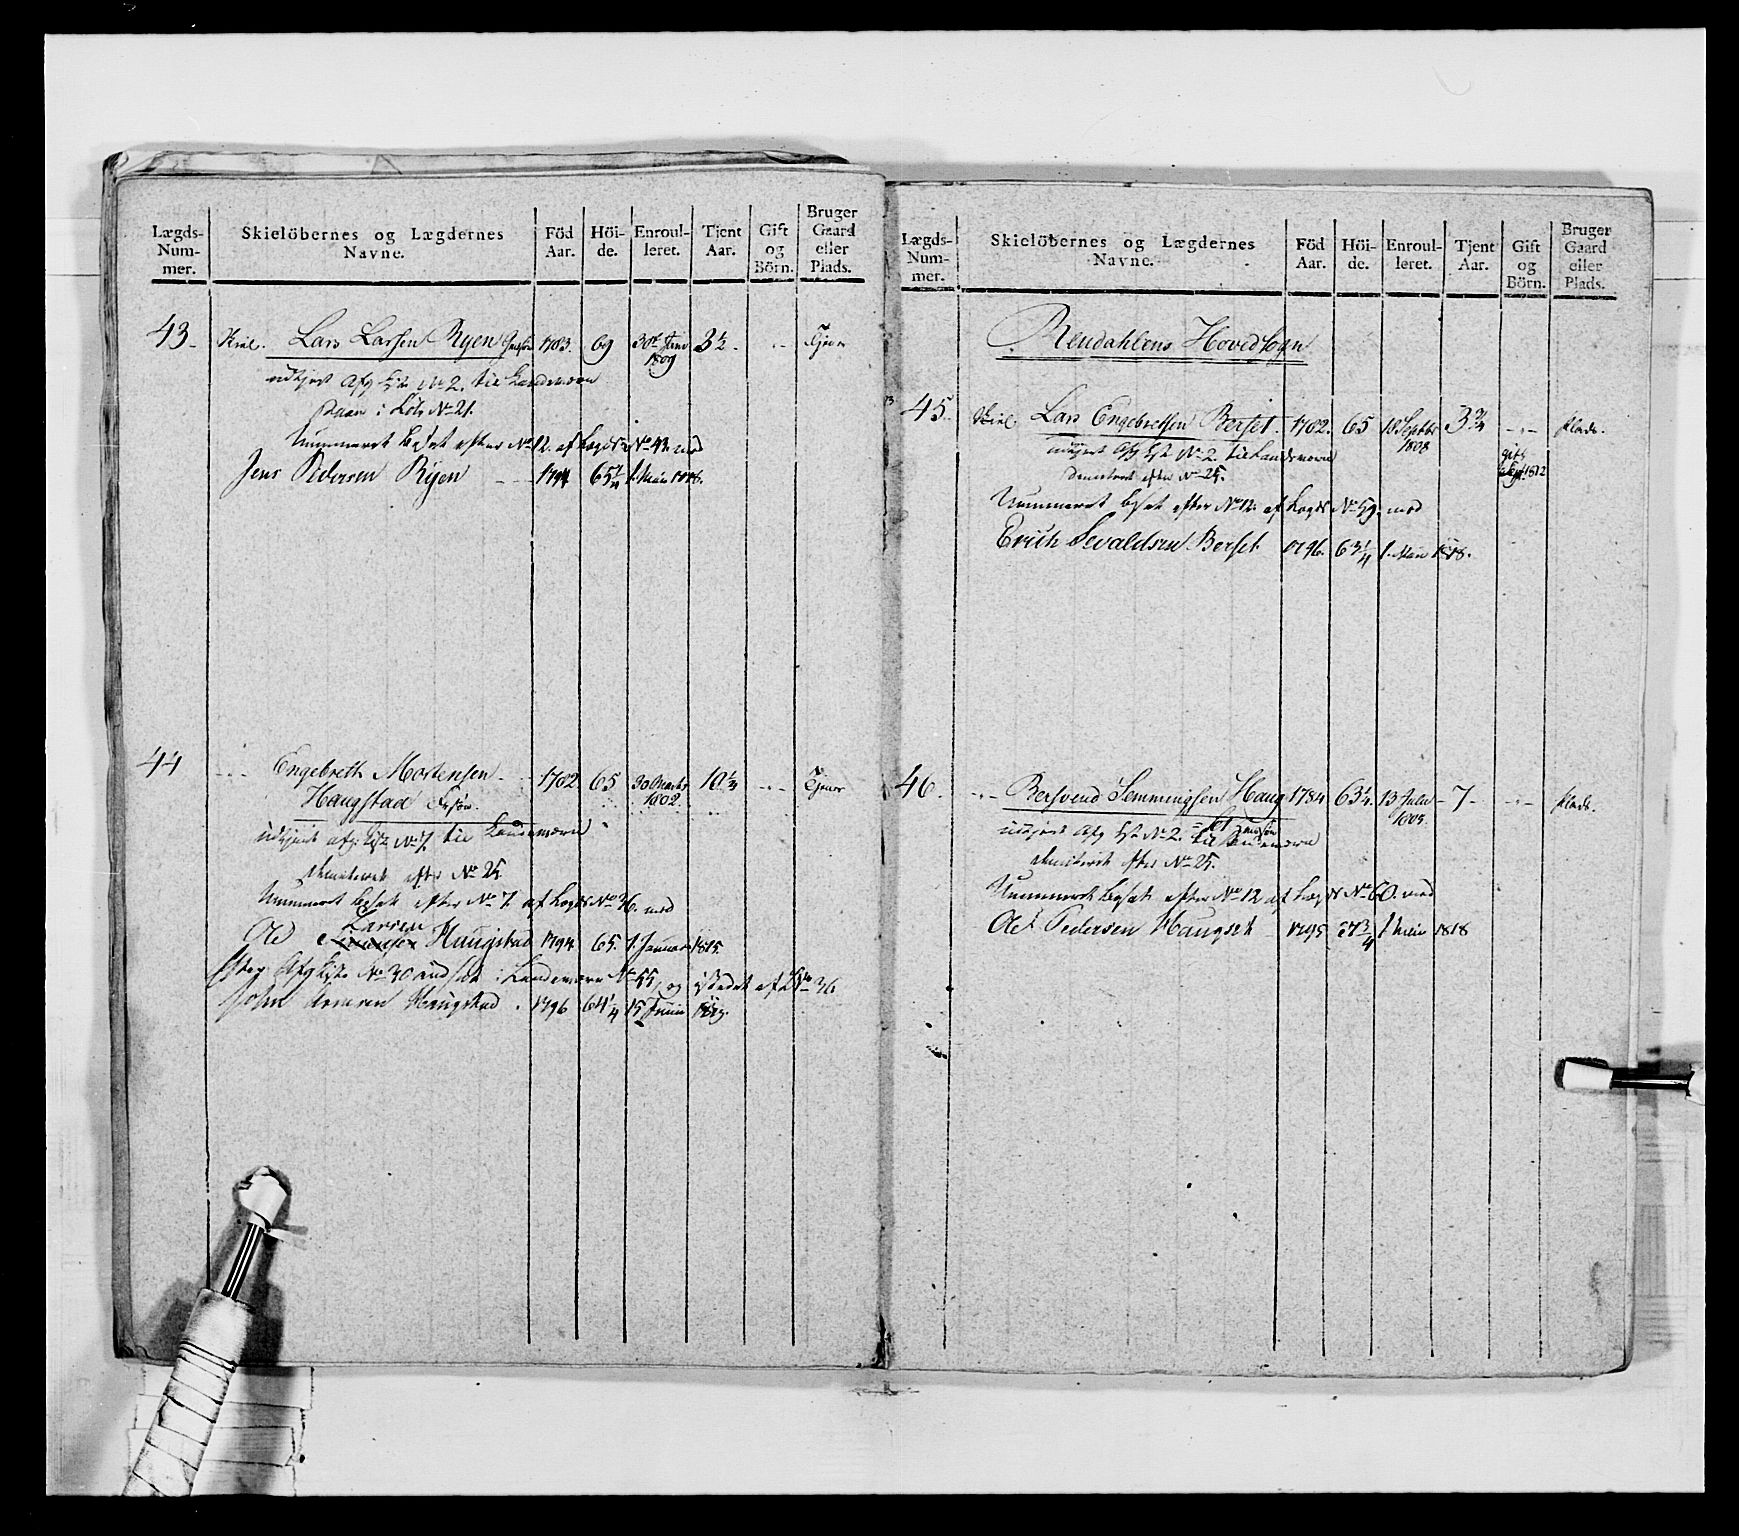 Lægds-Nummer. Skielöbernes og Lægdernes Navne. Föd Aar. Höide. Enroulleret. Tjent Aar. Gift og Börn. Bruger Gaard eller Plads.
43. Lars Larsen Ryen 1783. 69 30te Juni 1809 3½. Tjener
Afg. No 2. til Landeværn
No 21.
Nummeret besat efter No 12. af Lægds No 43. med
Jens Pedersen Ryen 1794 65½ 1. Mai 1818.
44 Engebreth Mortensen 1782. 65 30 Marts 1802. 10¼ Tjener
Haugstad
udtjent afg. No 7. til Landeværn
efter No 25.
Nummeret besat efter No 7. af Lægds No 36. med
Ole Larsen Haugstad 1794 65. 1. Januar 1815.
Afg No 30 indsat i Landeværn No 55, og i Stedet af No 36
John Haugstad 1796 64¼ 15 Juni 1819.
Lægds-Nummer. Skielöbernes og Lægdernes Navne. Föd Aar. Höide. Enroulleret. Tjent Aar. Gift og Börn. Bruger Gaard eller Plads.
Rendahlens Hovedsogn
45. Lars Engebretsen Berset. 1782. 65 18 Septbr 1808 3¾ Plads.
udtjent Afg No 2. til Landeværn gift
efter No 25. 1812
Nummeret besat efter No 12. af Lægds No 59. med
Erich Sevaldsen Berset. 1796. 63¼ 1. Mai 1818.
46. Bersvend Semmingsen Haug 1784 63¼. 13 Julii 1805. 7 Plads.
udtjent Afg No 2. til Landeværn
efter No 25.
Nummeret besat efter No 12 af Lægds No 60. med
Ole Pedersen Haugset 1795 67¾ 1 Mai 1818